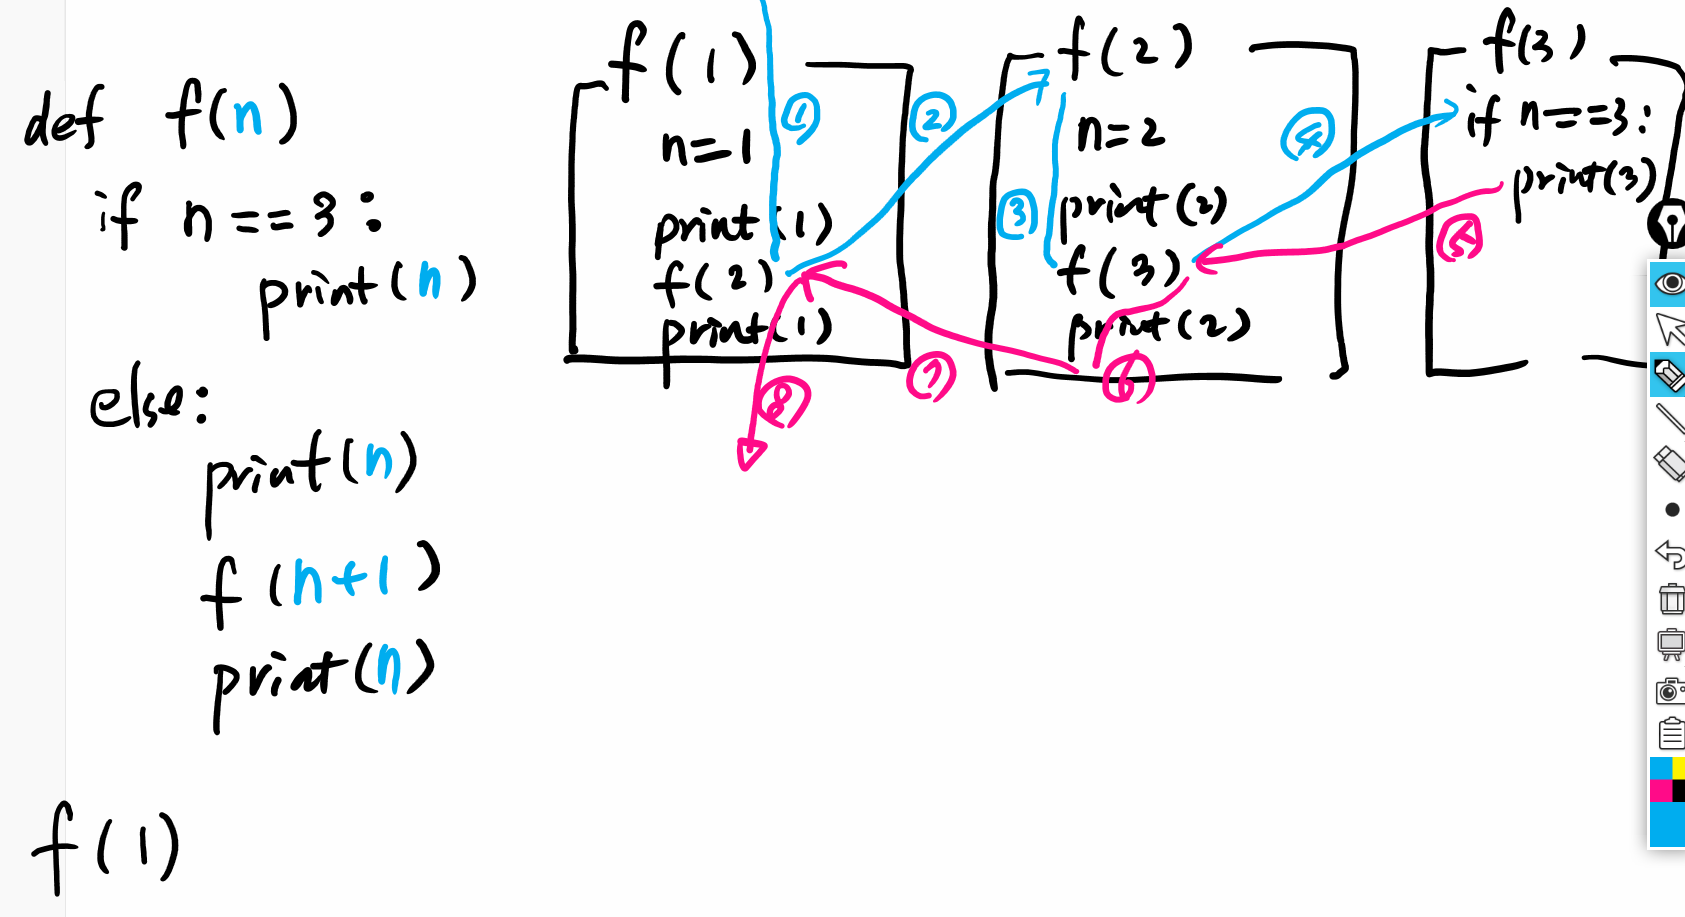 def f(n)
if n == 3 :
print(n)
else:
print(n)
f(n+1)
print(n)
f(1)
f(1)
n=1
print(1)
f(2)
print(1)
①
②
f(2)
n=2
print(2)
f(3)
print(2)
③
④
f(3)
if n==3:
print(3)
⑤
⑥
⑦
⑧